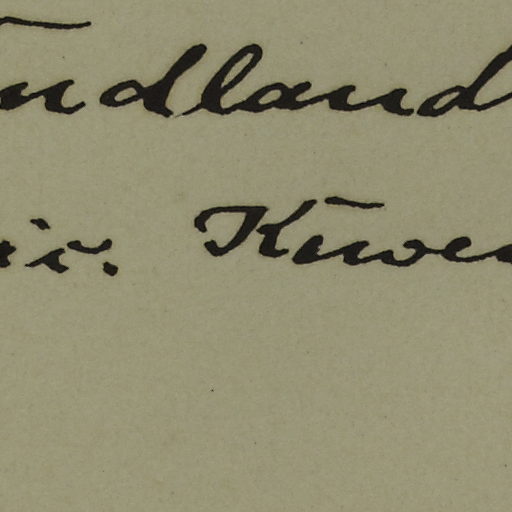 ndland
ir. Kuwe